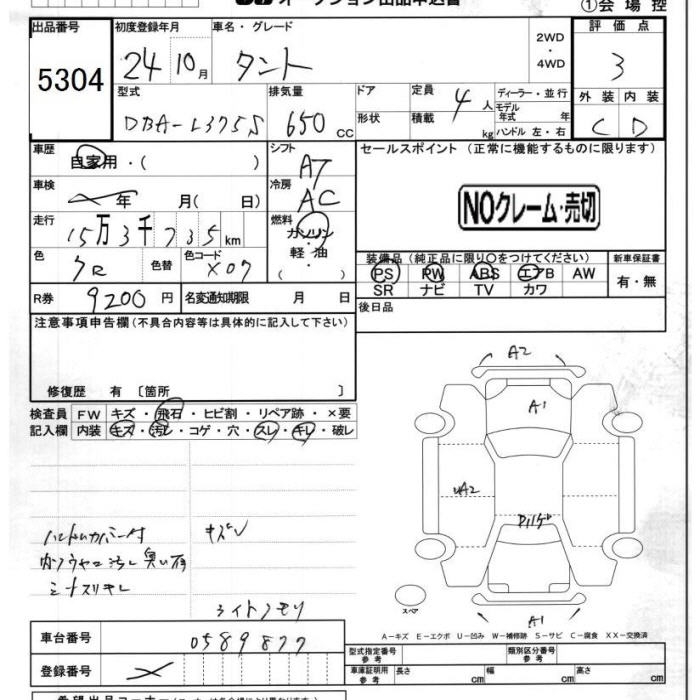 オークション出品申込書
①会場控
出品番号
5304
初度登録年月
24 10月
車名・グレード
タント
2WD
・
4WD
評価点
3
外装 内装
C D
型式
DBA-L375S
排気量
650 CC
ドア
形状
定員
4 人
積載
kg
ディーラー・並行
モデル年式 年
ハンドル 左・右
車歴
自家用・( )
シフト
AT
セールスポイント (正常に機能するものに限ります)
NOクレーム・売切
車検
年 月( 日)
冷房
AC
走行
15万3千735km
燃料
ガソリン
・
軽・油
( )
色
色替
色コード
X07
装備品 (純正品に限り○をつけてください)
PS PW ABS エアB AW
SR ナビ TV カワ
新車保証書
有・無
R券
9200円
名変通知期限 月 日
後日品
注意事項申告欄(不具合内容等は具体的に記入して下さい)
修復歴 有 〔箇所 〕
検査員
記入欄
FW キズ・飛石・ヒビ割・リペア跡・×要
内装 キズ・汚レ・コゲ・穴・スレ・キレ・破レ
A2
A1
A2
A1
ハンドルカバー付
キズV
汚し臭い有
シートスリキレ
ライトクモリ
スペア
A-キズ E-エクボ U-凹み W-補修跡 S-サビ C-腐食 XX-交換済
車台番号
0589877
登録番号
型式指定番号
参考
類別区分番号
参考
車庫証明用
参考
長さ cm 幅 cm 高さ cm